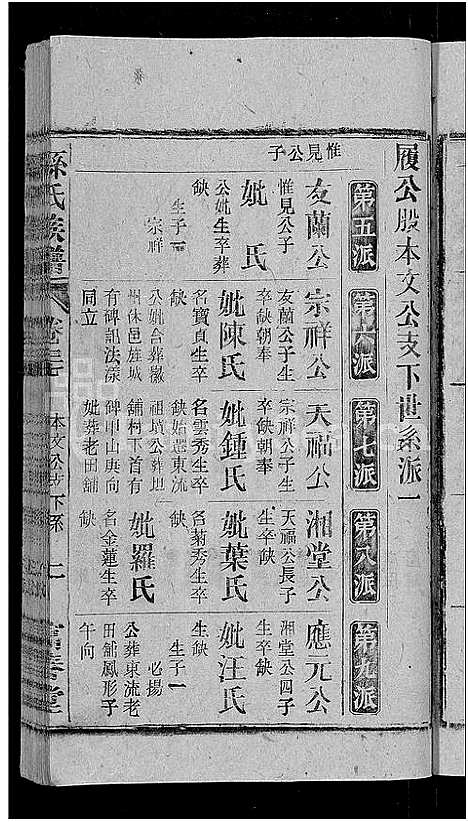 履公股本文公支下世系派一
惟見公子
第五派
友蘭公
惟見公子
妣 氏
公妣生卒葬
缺
生子一
宗祥
第六派
宗祥公
友蘭公子生
卒缺朝奉
妣陳氏
名寶貞生卒
缺
公妣合葬徽
州休邑旌城
有碑記法漾
同立
第七派
天福公
宗祥公子生
卒缺朝奉
妣鍾氏
名雲秀生卒
缺始遷東流
祖坑公葬地
舖村下首有
碑甲山庚向
妣葬老田舖
第八派
湘堂公
天福公長子
生卒缺
妣葉氏
名菊秀生卒
缺
妣羅氏
名金蓮生卒
缺
第九派
應元公
湘堂公四子
生卒缺
妣汪氏
生卒缺
生子一
必揚
公葬東流老
田舖鳳形子
午向
孫氏族譜
卷三
本文公支下系
二
富春堂